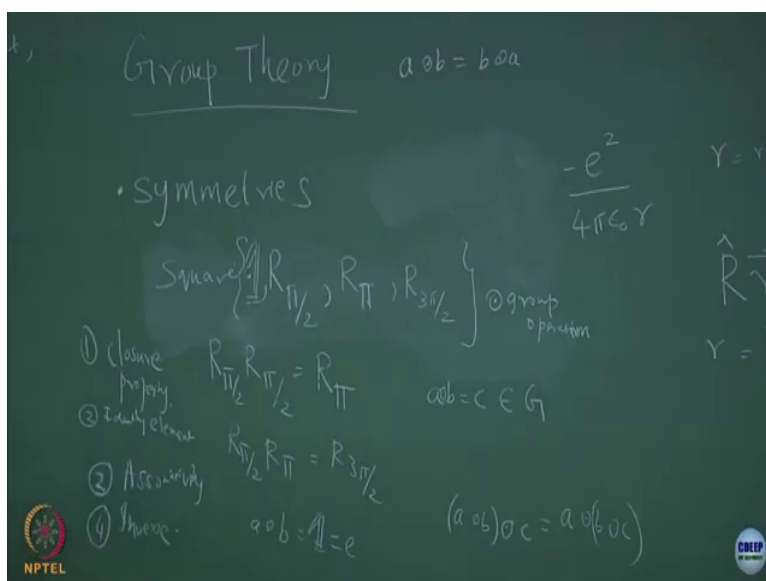 Group Theory a⊙b = b⊙a
• Symmetries
-e²/4π∈₀r
r = r
Square {𝟙, R_{π/2}, R_π, R_{3π/2}} ⊙ group operation
R̂ r⃗
r =
① Closure property
R_{π/2} R_{π/2} = R_π
a⊙b = c ∈ G
② Identity element
R_{π/2} R_π = R_{3π/2}
② Associativity
④ Inverse. a⊙b = 𝟙 = e
(a⊙b)⊙c = a⊙(b⊙c)
NPTEL
CDEEP
IIT BOMBAY